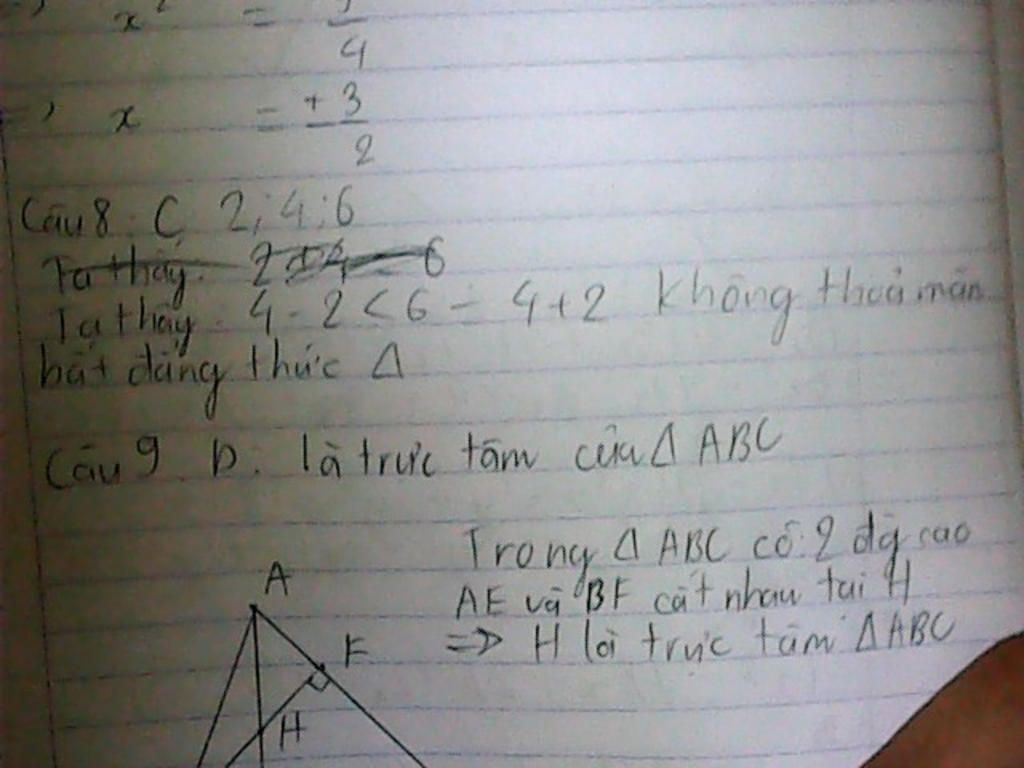 => x² = 9/4
=> x = ±3/2
Câu 8: C, 2; 4; 6
Ta thấy. 2+4 = 6
Ta thấy. 4 - 2 < 6 = 4 + 2 không thoả mãn
bất đẳng thức Δ
Câu 9 D. là trực tâm của Δ ABC
Trong Δ ABC có 2 đg cao
AE và BF cắt nhau tại H
=> H là trực tâm ΔABC
A
F
H